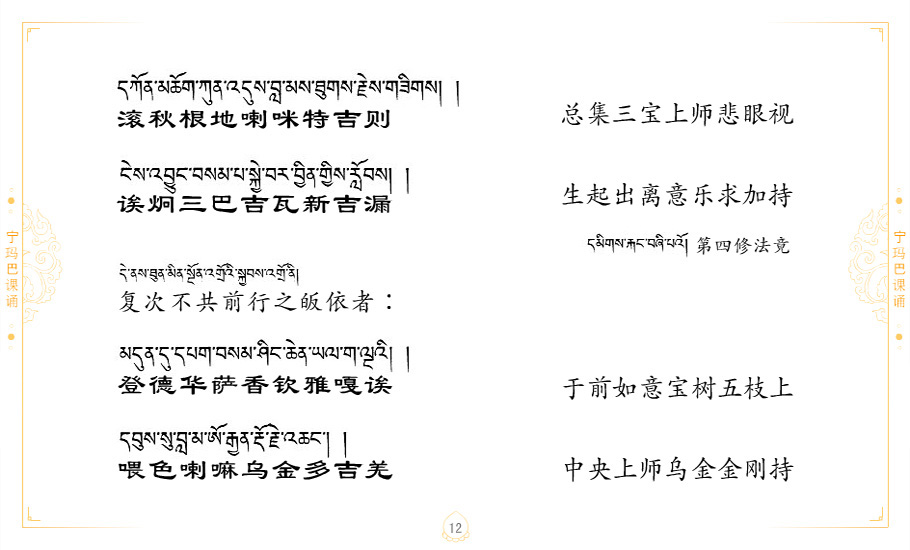 དཀོན་མཆོག་ཀུན་འདུས་བླ་མས་ཐུགས་རྗེས་གཟིགས། །
滚秋根地喇咪特吉则
总集三宝上师悲眼视
ངེས་འབྱུང་བསམ་པ་སྐྱེ་བར་བྱིན་གྱིས་རློབས། །
诶炯三巴吉瓦新吉漏
生起出离意乐求加持
དམིགས་རྐང་བཞི་པའོ། 第四修法竟
དེ་ནས་ཐུན་མིན་སྔོན་འགྲོའི་སྐྱབས་འགྲོ་ནི།
复次不共前行之皈依者：
མདུན་དུ་དཔག་བསམ་ཤིང་ཆེན་ཡལ་ག་ལྔའི། །
登德华萨香钦雅嘎诶
于前如意宝树五枝上
དབུས་སུ་བླ་མ་ཨོ་རྒྱན་རྡོ་རྗེ་འཆང་། །
喂色喇嘛乌金多吉羌
中央上师乌金金刚持
宁玛巴课诵
宁玛巴课诵
12